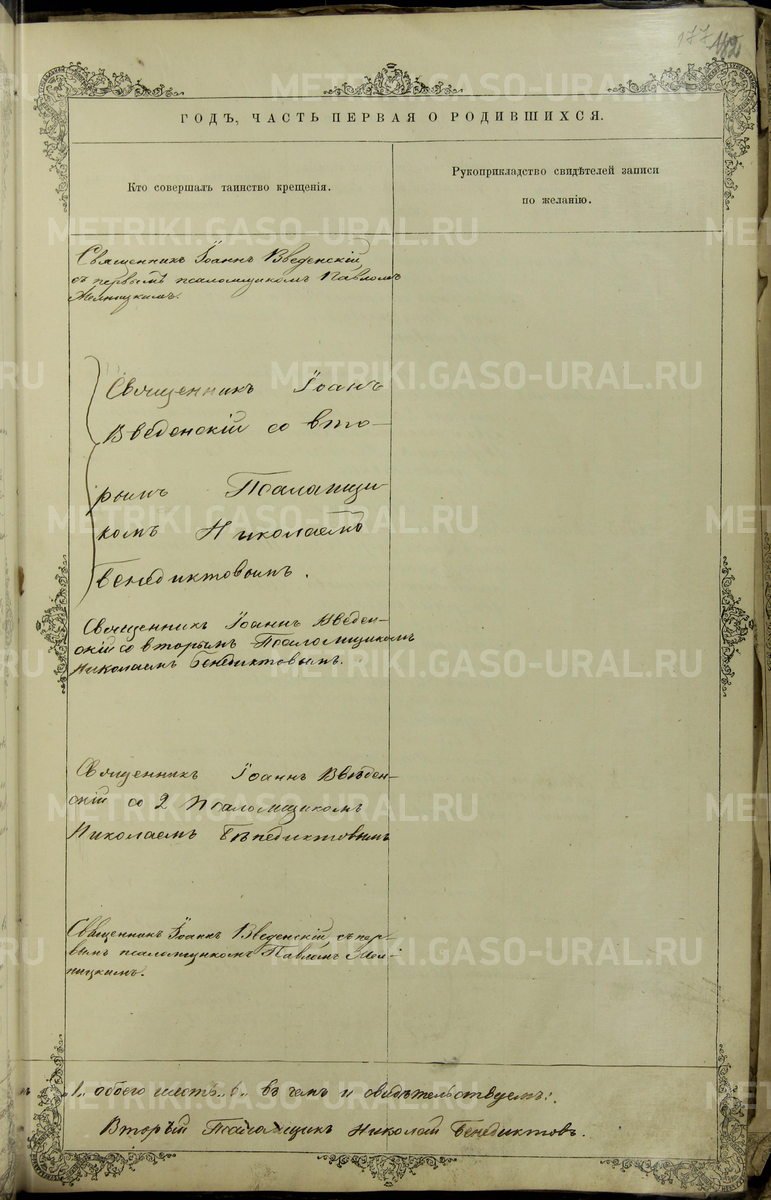 177
ГОДЪ, ЧАСТЬ ПЕРВАЯ О РОДИВШИХСЯ.
Кто совершалъ таинство крещенія.
Рукоприкладство свидѣтелей записи
по желанію.
Священникъ Іоаннъ Введенскій
съ первымъ псаломщикомъ Павломъ
Священникъ Іоаннъ
Введенскій со вто-
рымъ Псаломщи-
комъ Николаемъ
Бенедиктовымъ.
Священникъ Іоаннъ Введен-
скій со вторымъ Псаломщикомъ
Николаемъ Бенедиктовымъ.
Священникъ Іоаннъ Введен-
скій со 2 Псаломщикомъ
Николаемъ Бенедиктовымъ
Священникъ Іоаннъ Введенскій, съ пер-
вымъ псаломщикомъ Павломъ
ницкимъ.
1, обоего шесть „6„ въ чемъ и свидѣтельствуемъ:
Вторый Псаломщикъ Николай Бенедиктовъ.
METRIKI.GASO-URAL.RU